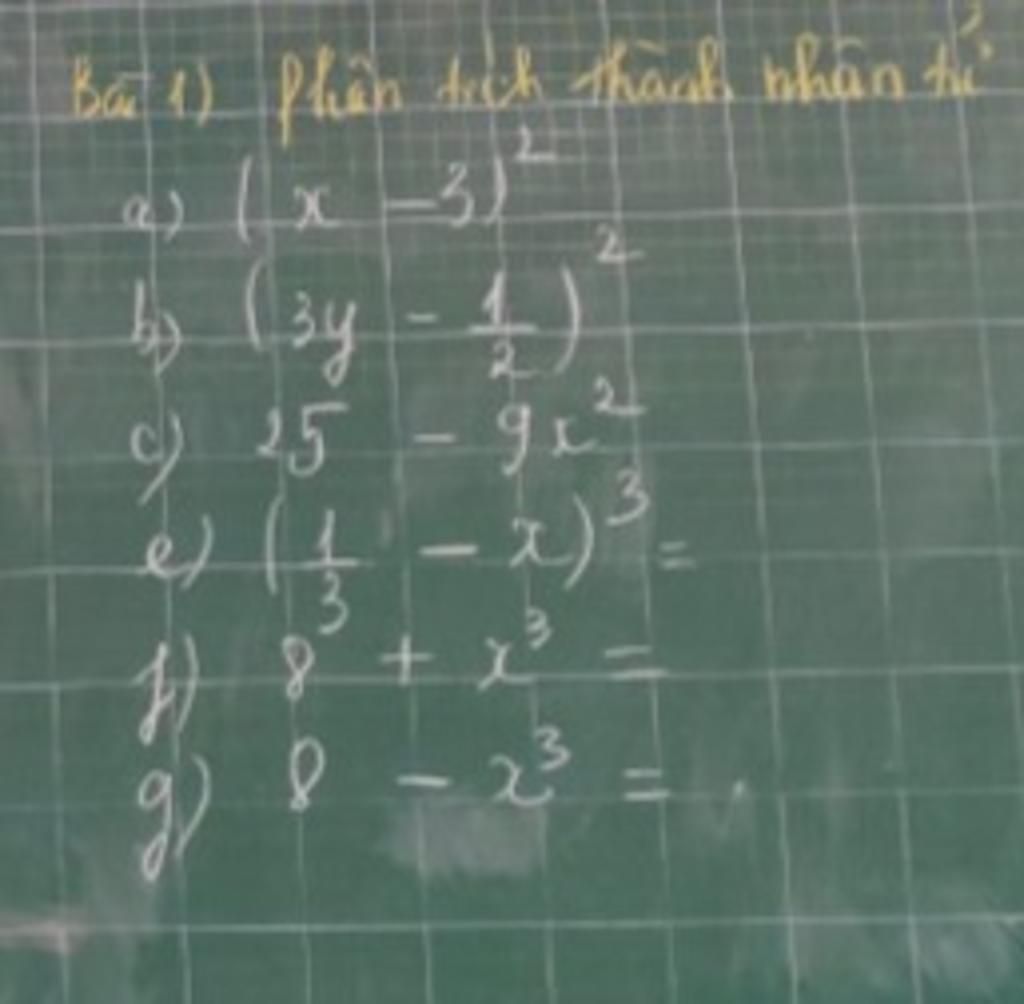 Bài 1) Phân tích thành nhân tử
a) (x - 3)²
b) (3y - 1/2)²
c) 25 - 9x²
e) (1/3 - x)³ =
f) 8 + x³ =
g) 8 - x³ =